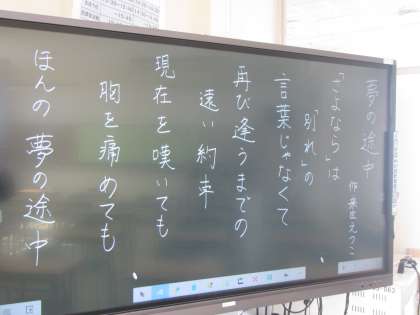 夢の途中
作 来生えつこ
「さよなら」は
「別れ」の
言葉じゃなくて
再び逢うまでの
遠い約束
現在を嘆いても
胸を痛めても
ほんの夢の途中